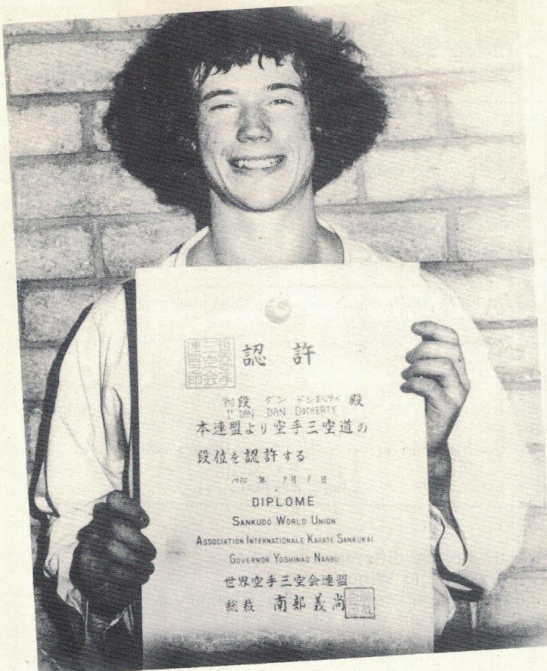 認許
初段 ダン ドシエルティ 殿
1er DAN DAN DOCHERTY
本連盟より空手三空道の
段位を認許する
月 1 日
DIPLOME
SANKUDO WORLD UNION
ASSOCIATION INTERNATIONALE KARATE SANKUKAI
GOVERNOR YOSHINAO NANBU
世界空手三空会連盟
総裁 南部義尚